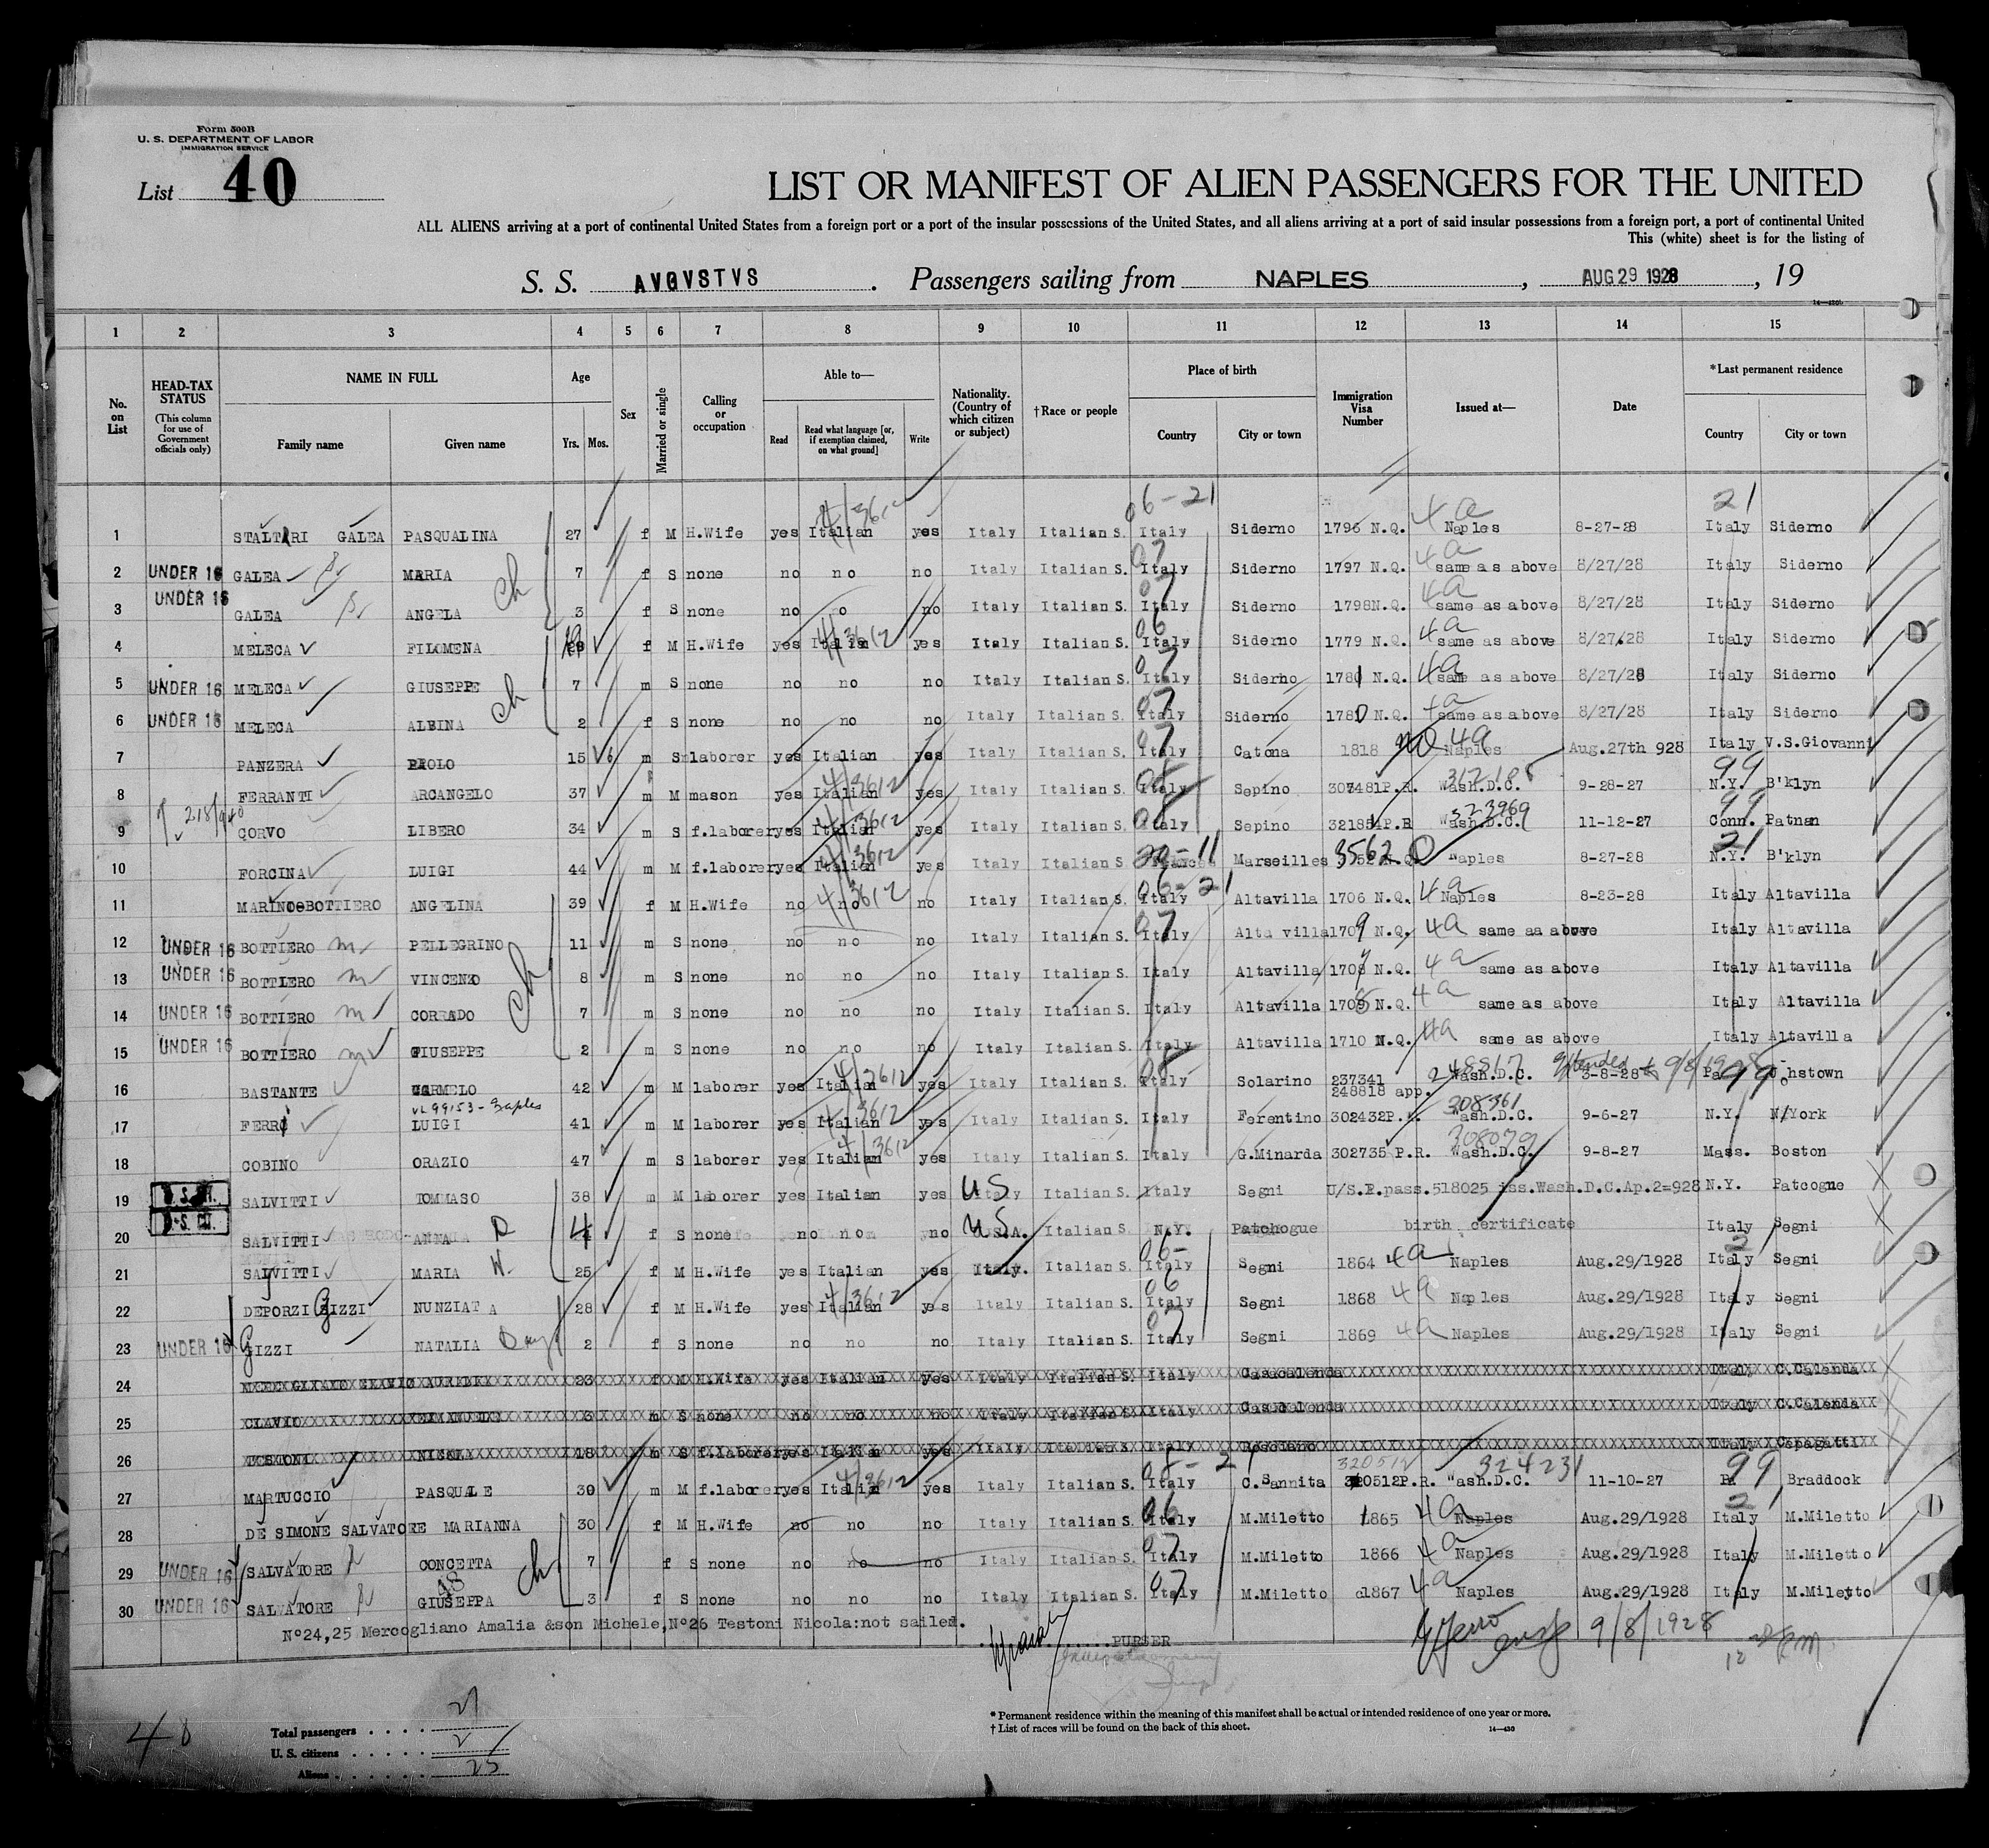 Form 500B
U. S. DEPARTMENT OF LABOR
IMMIGRATION SERVICE
List 40
LIST OR MANIFEST OF ALIEN PASSENGERS FOR THE UNITED
ALL ALIENS arriving at a port of continental United States from a foreign port or a port of the insular possessions of the United States, and all aliens arriving at a port of said insular possessions from a foreign port, a port of continental United
This (white) sheet is for the listing of
S. S. AVGVSTVS . Passengers sailing from NAPLES , AUG 29 1928 , 19
1 2 3 4 5 6 7 8 9 10 11 12 13 14 15
No. on List
HEAD-TAX STATUS (This column for use of Government officials only)
NAME IN FULL Family name Given name
Age Yrs. Mos.
Sex
Married or single
Calling or occupation
Able to— Read Read what language [or, if exemption claimed, on what ground] Write
Nationality. (Country of which citizen or subject)
†Race or people
Place of birth Country City or town
Immigration Visa Number
Issued at—
Date
*Last permanent residence Country City or town
06-21 21
1 STALTARI GALEA PASQUALINA 27 f M H.Wife yes Italian yes Italy Italian S. Italy Siderno 1796 N.Q. 4a Naples 8-27-28 Italy Siderno
2 UNDER 16 GALEA MARIA 7 f S none no no no Italy Italian S. Italy Siderno 1797 N.Q. 4a same as above 8/27/28 Italy Siderno
3 UNDER 16 GALEA ANGELA ch 3 f S none no no no Italy Italian S. Italy Siderno 1798N.Q. 4a same as above 8/27/28 Italy Siderno
4 MELECA FILOMENA f M H.Wife yes Italian yes Italy Italian S. Italy Siderno 1779 N.Q. 4a same as above 8/27.28 Italy Siderno
5 UNDER 16 MELECA GIUSEPPE ch 7 m S none no no no Italy Italian S. Italy Siderno 1781 N.Q. 4a same as above 8/27/28 Italy Siderno
6 UNDER 16 MELECA ALBINA 2 f S none no no no Italy Italian S. Italy Siderno 1780 N.Q. 4a same as above 8/27/28 Italy Siderno
7 PANZERA PAOLO 15 6 m S laborer yes Italian yes Italy Italian S. Italy Catona 1818 NQ 4a Naples Aug.27th 928 Italy V.S.Giovanni
8 FERRANTI ARCANGELO 37 m M mason yes Italian yes Italy Italian S. Italy Sepino 307481P.R. Wash.D.C. 9-28-27 N.Y. B'klyn
9 CORVO LIBERO 34 m S f.laborer yes Italian yes Italy Italian S. Italy Sepino 321854P.R 323969 Wash.D.C. 11-12-27 Conn. Patnan
10 FORCINA LUIGI 44 m M f.laborer yes Italian yes Italy Italian S. Marseilles 3562 Naples 8-27-28 N.Y. B'klyn
11 MARINO-BOTTIERO ANGELINA 39 f M H.Wife no no no Italy Italian S. Italy Altavilla 1706 N.Q. 4a Naples 8-23-28 Italy Altavilla
12 UNDER 16 BOTTIERO m PELLEGRINO 11 m S none no no no Italy Italian S. Italy Alta villa 1709 N.Q. 4a same aa above Italy Altavilla
13 UNDER 16 BOTTIERO m VINCENZO ch 8 m S none no no no Italy Italian S. Italy Altavilla N.Q. 4a same as above Italy Altavilla
14 UNDER 16 BOTTIERO m CORRADO 7 m S none no no no Italy Italian S. Italy Altavilla N.Q. 4a same as above Italy Altavilla
15 UNDER 16 BOTTIERO m GIUSEPPE 2 m S none no no no Italy Italian S. Italy Altavilla 1710 N.Q. 4a same as above Italy Altavilla
16 BASTANTE CARMELO 42 m M laborer yes Italian yes Italy Italian S. Italy Solarino 237341 248818 app. 248817 Wash.D.C. 3-8-28 Extended to 9/8/1928 Pa. Johnstown
VL 99153-Naples
17 FERRI LUIGI 41 m M laborer yes Italian yes Italy Italian S. Italy Ferentino 302432P.R. 308361 Wash.D.C. 9-6-27 N.Y. N/York
18 COBINO ORAZIO 47 m S laborer yes Italian yes Italy Italian S. Italy G.Minarda 302735 P.R. 308079 Wash.D.C. 9-8-27 Mass. Boston
19 SALVITTI TOMMASO 38 m M laborer yes Italian yes US Italian S. Italy Segni U/S.P.pass.518025 iss.Wash.D.C.Ap.2=928 N.Y. Patcogue
20 SALVITTI ANNA D 4 f S none no no no U.S.A. Italian S. N.Y. Patchogue birth certificate Italy Segni
21 SALVITTI MARIA W. 25 f M H.Wife yes Italian yes Italy. Italian S. Italy Segni 1864 4a Naples Aug.29/1928 Italy Segni
22 DEPORZI GIZZI NUNZIATA 28 f M H.Wife yes Italian yes Italy Italian S. Italy Segni 1868 4a Naples Aug.29/1928 Italy Segni
23 UNDER 16 GIZZI NATALIA 2 f S none no no no Italy Italian S. Italy Segni 1869 4a Naples Aug.29/1928 Italy Segni
24 23 f M H.Wife yes Italian yes Italy Italian S. Italy Casacalenda Italy C.Calenda
25 CLAVIO EMANUELE 3 m S none no no no Italy Italian S. Italy Casacalenda Italy C.Calenda
26 TESTONI NICOLA 18 m S f.laborer yes Italian yes Italy Italian S. Italy Rosciano Italy Cepagatti
27 MARTUCCIO PASQUALE 39 m M f.laborer yes Italian yes Italy Italian S. Italy C.Sannita 320512P.R. 324231 Wash.D.C. 11-10-27 Pa Braddock
28 DE SIMONE SALVATORE MARIANNA 30 f M H.Wife no no no Italy Italian S. Italy M.Miletto 1865 4a Naples Aug.29/1928 Italy M.Miletto
29 UNDER 16 SALVATORE CONCETTA ch 7 f S none no no no Italy Italian S. Italy M.Miletto 1866 4a Naples Aug.29/1928 Italy M.Miletto
30 UNDER 16 SALVATORE GIUSEPPA 3 f S none no no no Italy Italian S. Italy M.Miletto 1867 4a Naples Aug.29/1928 Italy M.Miletto
Nº24,25 Mercogliano Amalia &son Michele,Nº26 Testoni Nicola:not sailed.
PURSER
9/8/1928
Total passengers
U. S. citizens
Aliens 25
48
* Permanent residence within the meaning of this manifest shall be actual or intended residence of one year or more.
† List of races will be found on the back of this sheet.
14—430